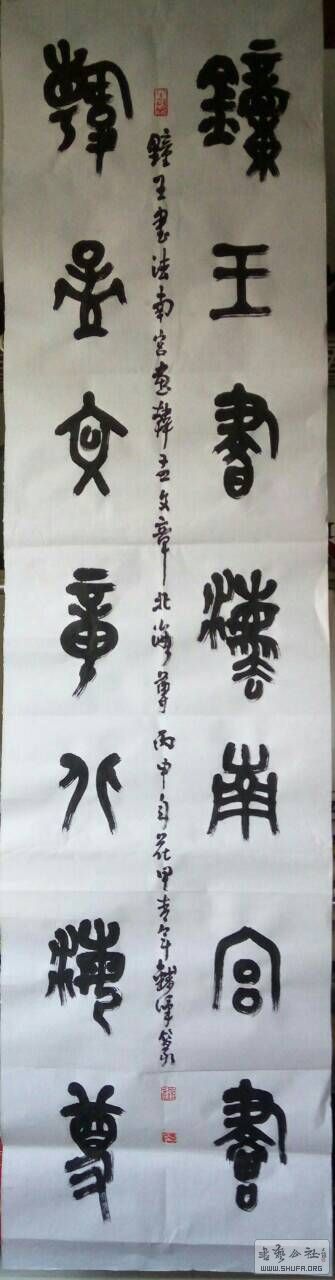 鐘王書法南宮畫
鐘王書法南宮畫韓孟文章北海尊 丙申年花甲青年篆
韓孟文章北海尊
书艺公社
WWW.SHUFA.ORG